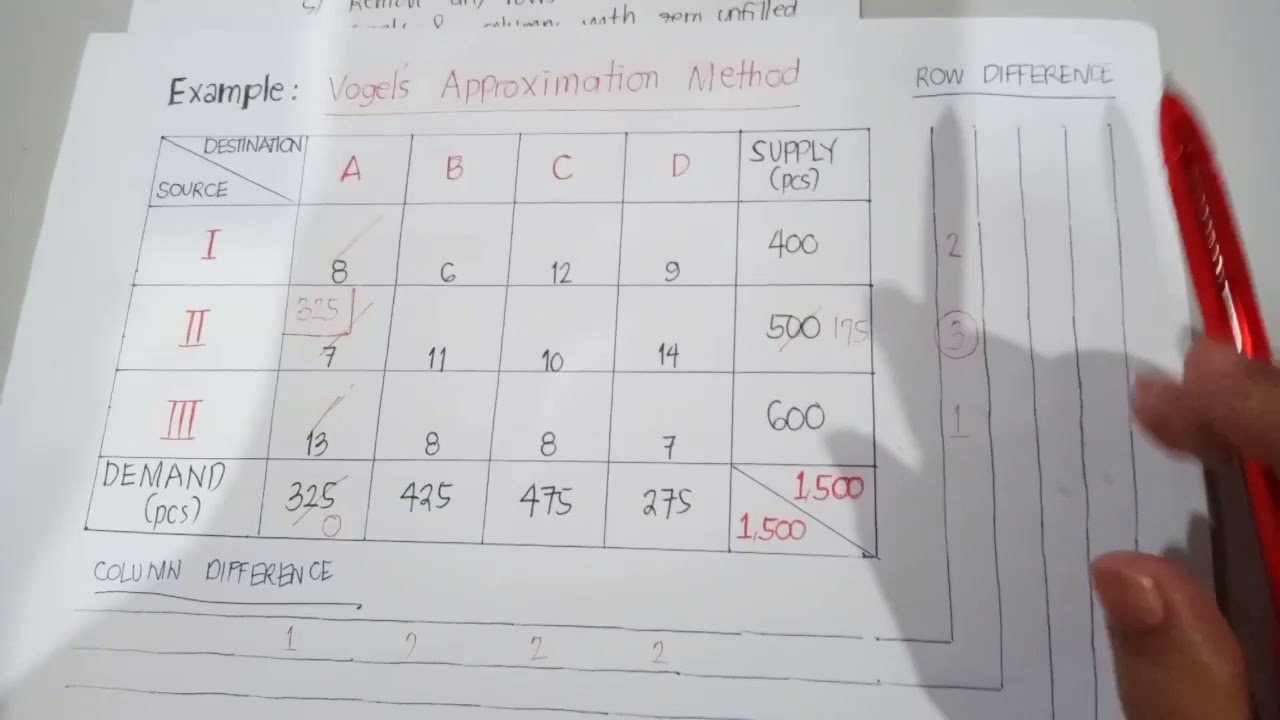 5) Remove any rows
with zero unfilled
Example: Vogel's Approximation Method
ROW DIFFERENCE
DESTINATION
SOURCE
A B C D SUPPLY (pcs)
I 8 6 12 9 400 2
II 325 7 11 10 14 500 175 3
III 13 8 8 7 600 1
DEMAND (pcs) 325 0 425 475 275 1,500
1,500
COLUMN DIFFERENCE
1 2 2 2